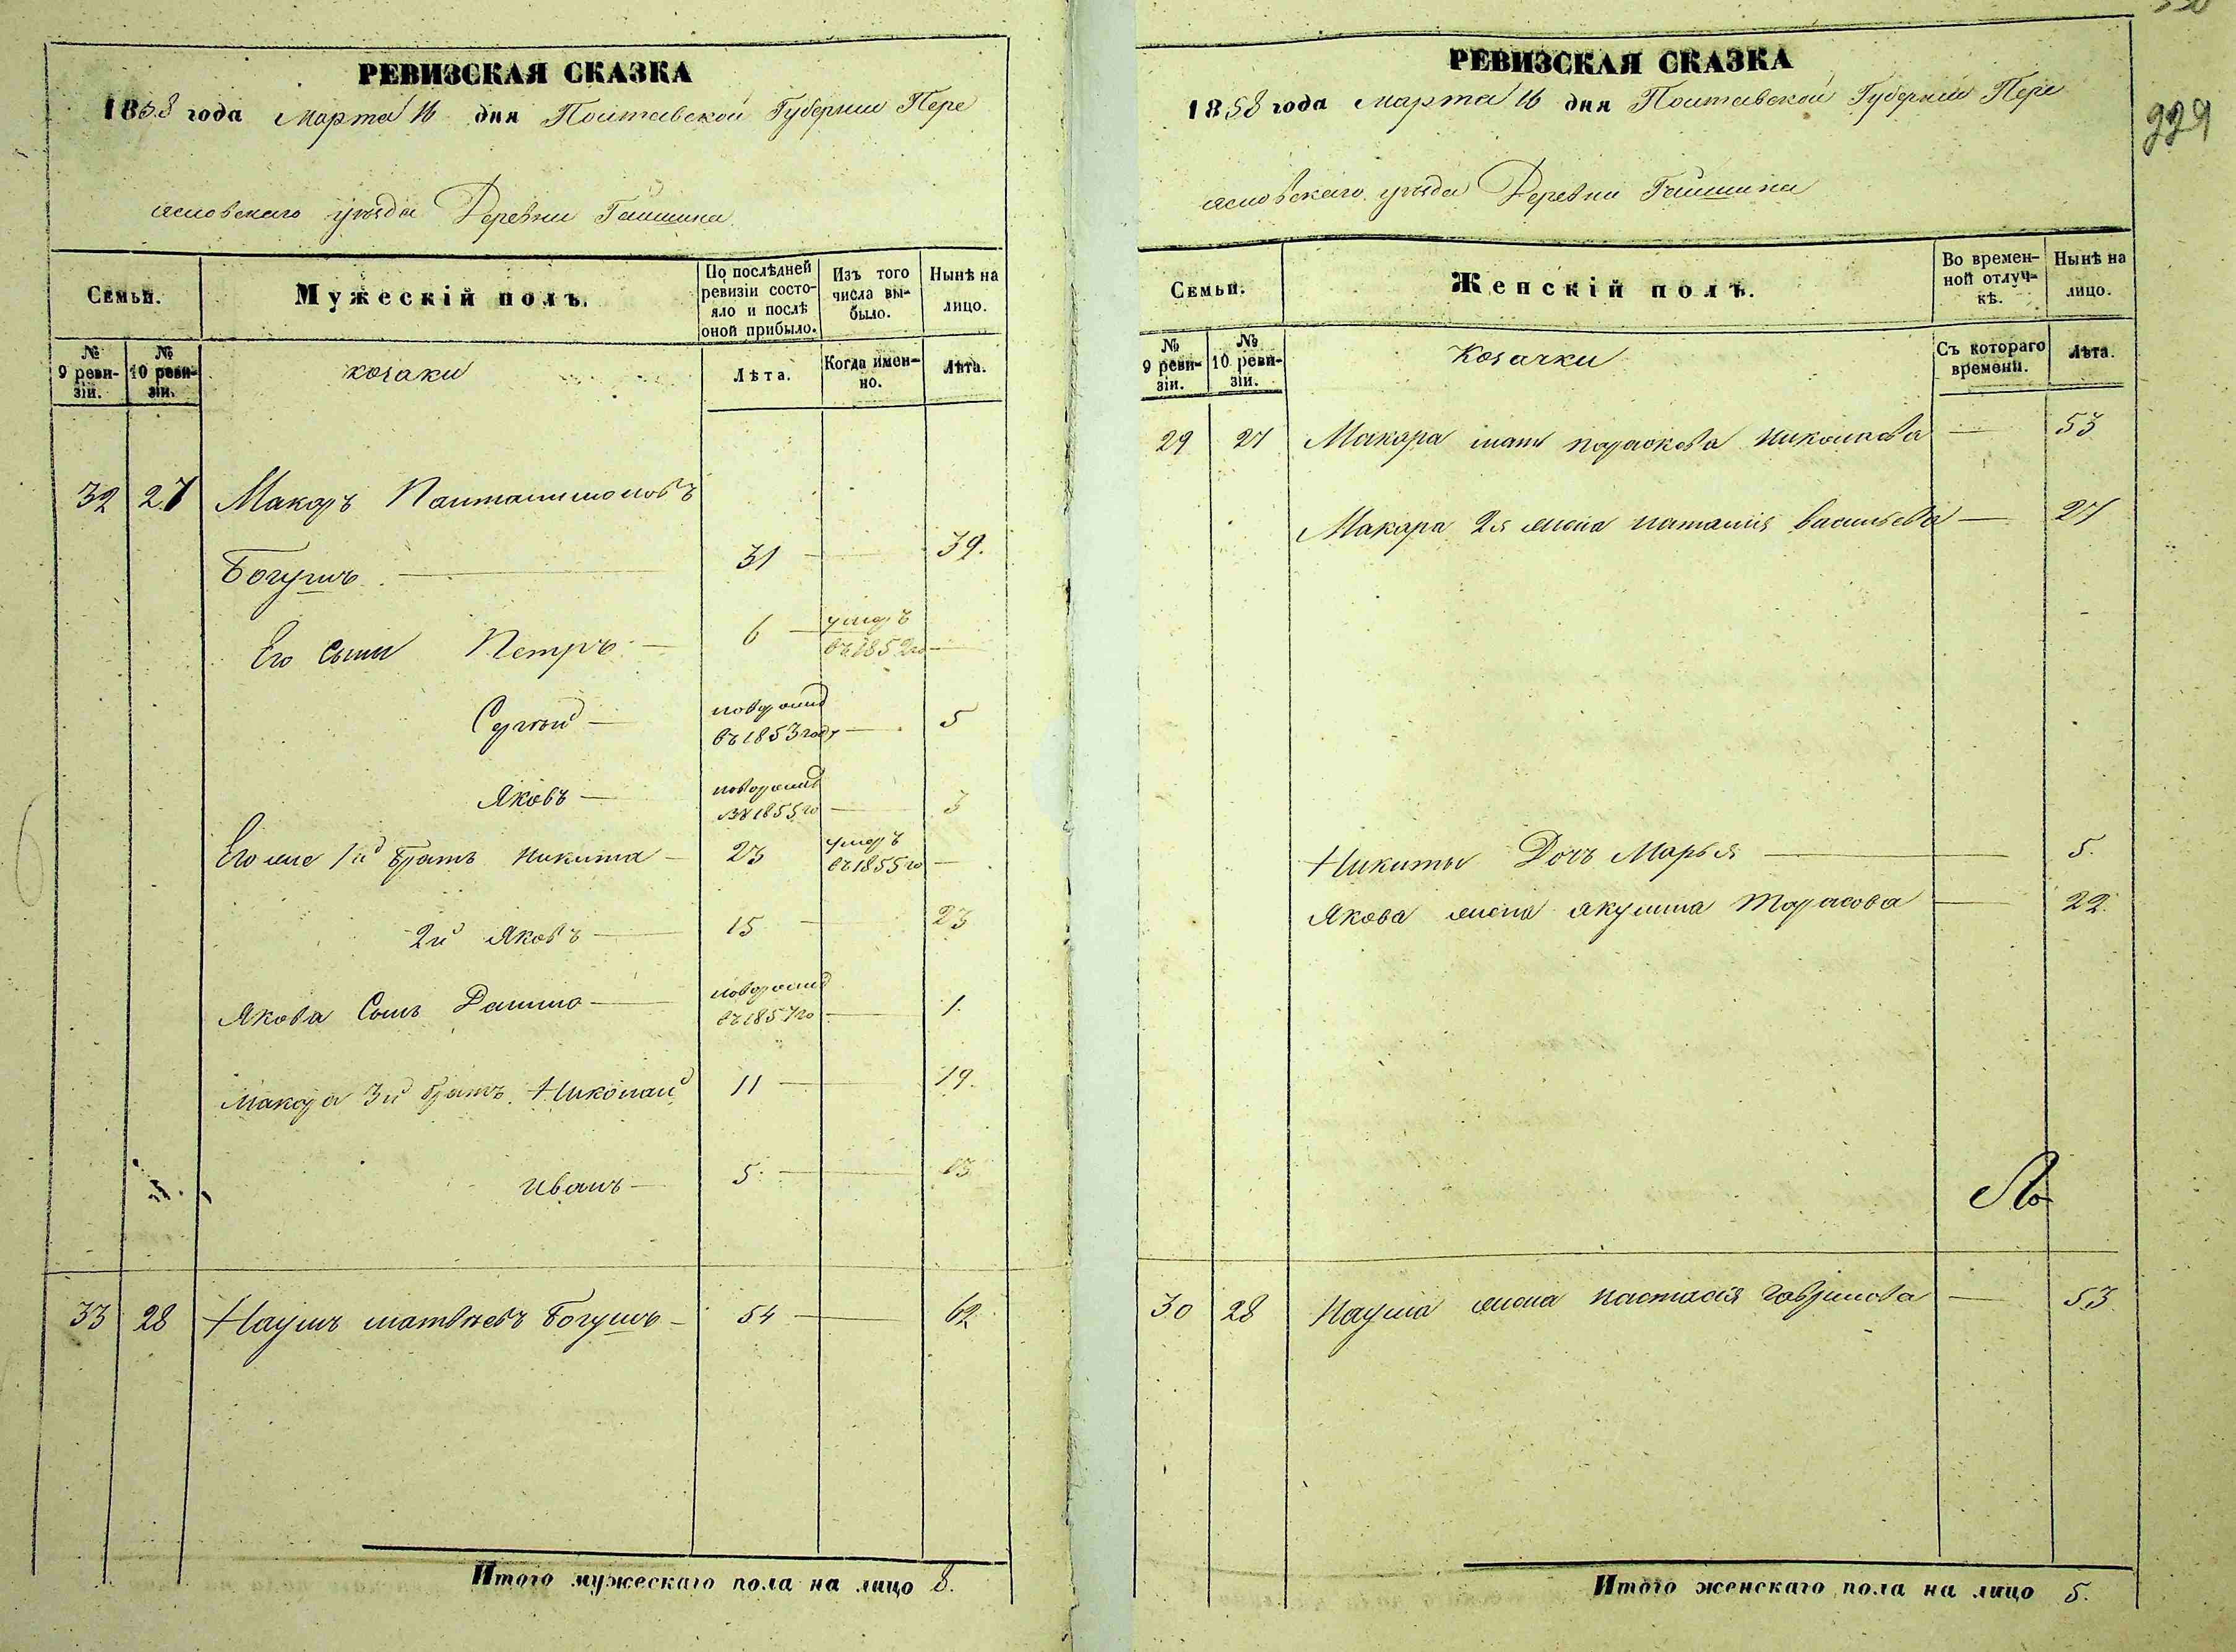 РЕВИЗСКАЯ СКАЗКА
1858 года Марта 16 дня Полтавской Губернии Пере
яславскаго уезда Деревни Гайшина
Семьи.
Мужескій полъ.
По послѣдней ревизіи состояло и послѣ оной прибыло.
Изъ того числа выбыло.
Нынѣ на лицо.
№ 9 ревизіи.
№ 10 ревизіи.
козаки
Лѣта.
Когда именно.
Лѣта.
32 27 Макаръ Панталимоновъ
Богушъ 31 39.
Его сыны Петръ 6 умеръ въ 1852 го
Сергѣй новорожд въ 1853 году 5
Яковъ новорожд въ 1855 го 3
Его же 1й братъ Никита 23 умеръ въ 1855 го
2й Яковъ 15 23
Якова Сынъ Данило новорожд въ 1857 го 1.
Макара 3й братъ Николай 11 19.
Иванъ 5. 13
33 28 Наумъ Матвѣевъ Богушъ 54 62
Итого мужескаго пола на лицо 8.
229
РЕВИЗСКАЯ СКАЗКА
1858 года Марта 16 дня Полтавской Губернии Пере
яславскаго уезда Деревни Гайшина
Семьи.
Женскій полъ.
Во временной отлучкѣ.
Нынѣ на лицо.
№ 9 ревизіи.
№ 10 ревизіи.
Козачки
Съ котораго времени.
Лѣта.
29 27 Макара мать Параскева Николаева 53
Макара 2я жена Наталія Васильева 27
Никиты Дочь Марья 5.
Якова жена Акулина Тарасова 22.
30 28 Наума жена Настасія Гаврилова 53
Итого женскаго пола на лицо 5.